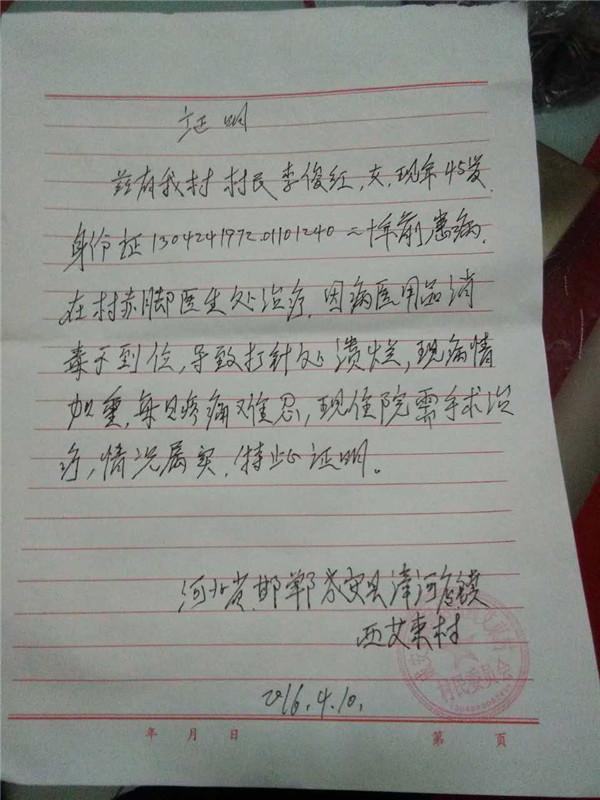 证明
兹有我村村民李俊红,女,现年45岁,
身份证130424197201101240二十年前患病,
在村赤脚医生处治疗,因病医用品消
毒不到位,导致打针处溃烂,现病情
加重,每日疼痛难忍,现住院需手术治
疗,情况属实,特此证明。
河北省邯郸成安县漳河店镇
西艾束村
村民委员会
2016.4.10.
年 月 日
第 页